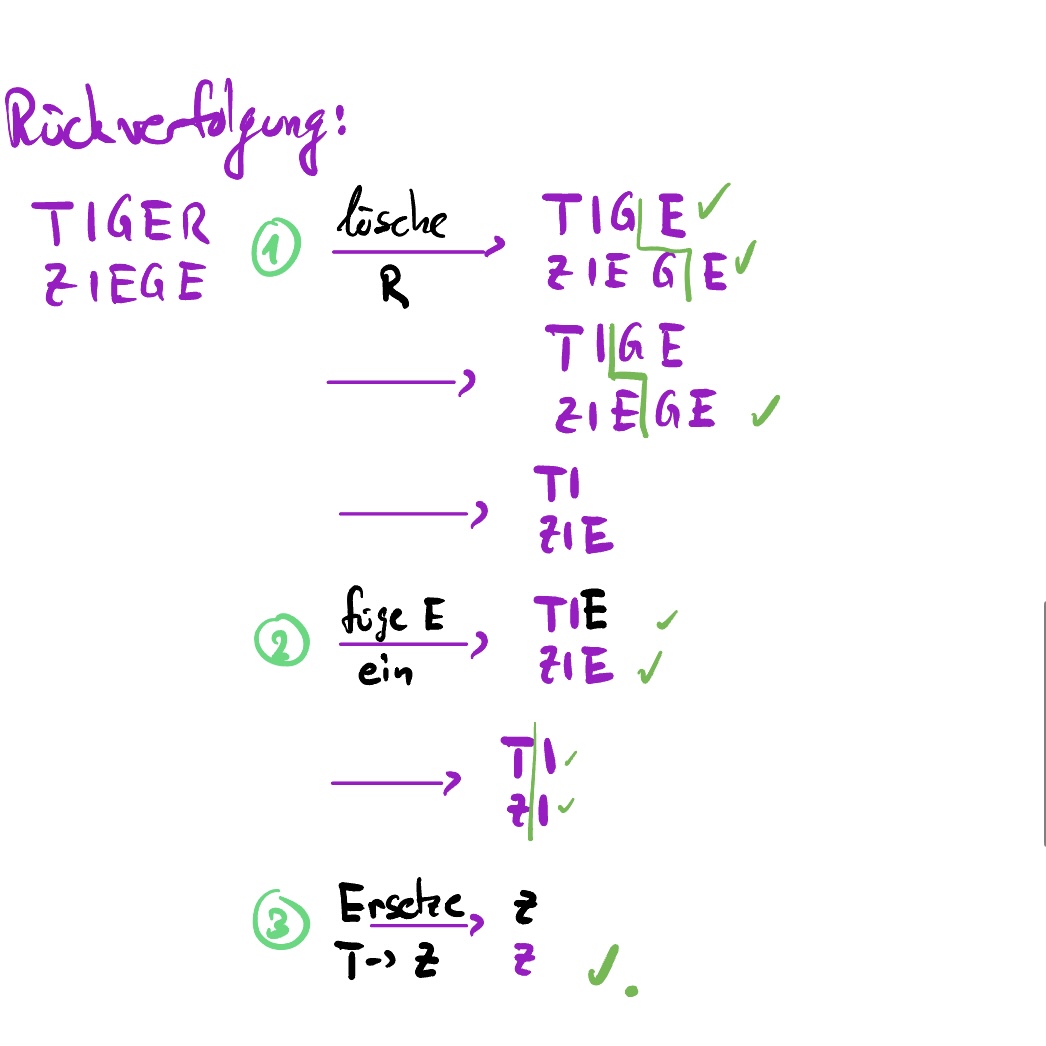 Rückverfolgung:
TIGER
ZIEGE
① lösche
R
TIG E
ZIE G E
TIGE
ZIEGE
TI
ZIE
② füge E
ein
TIE
ZIE
TI
ZI
③ Ersetze
T -> Z
Z
Z